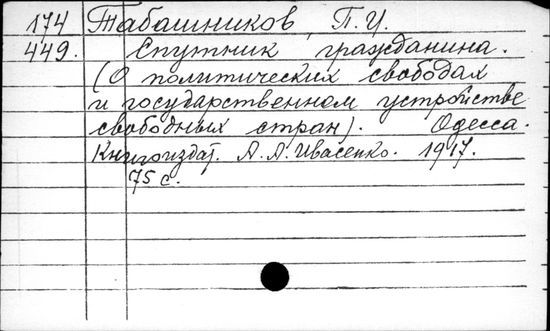 174 Табашников, П. И.
449. Спутник гражданина.
(О политических свободах
и государственном устройстве
свободных стран). Одесса.
Книгоиздат. А. А. Ивасенко. 1917.
75 с.